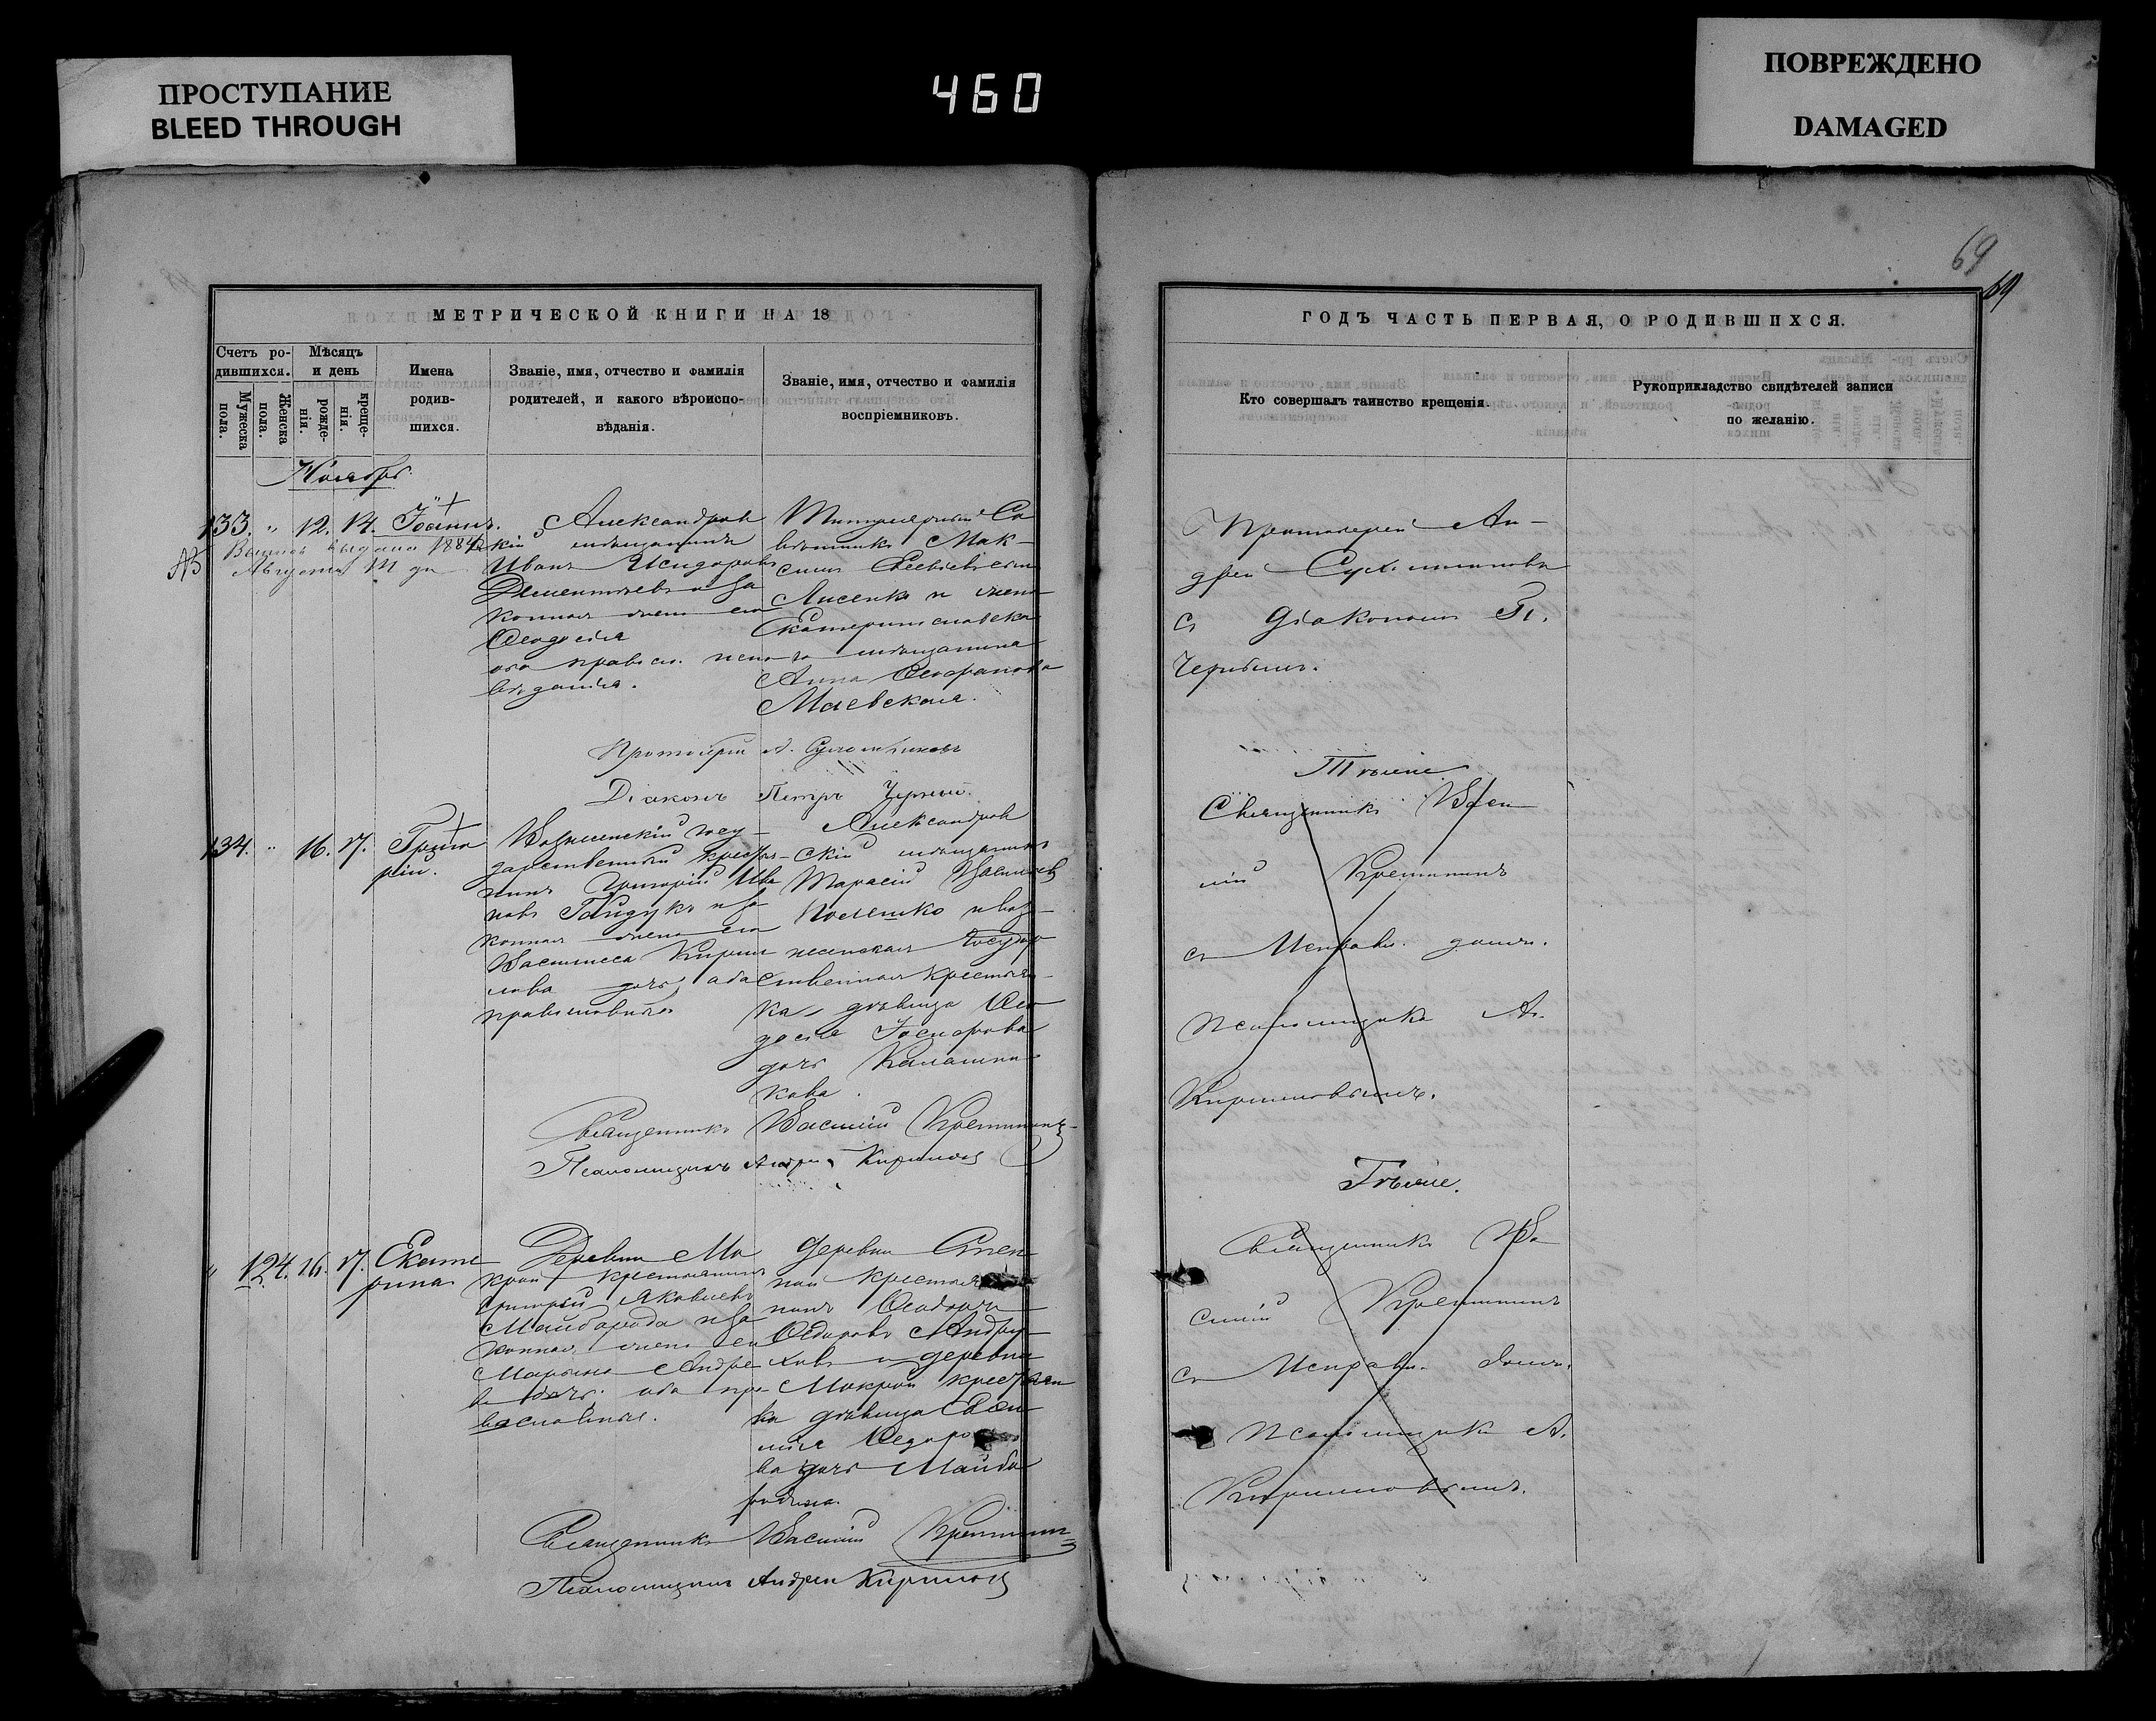 ПРОСТУПАНИЕ
BLEED THROUGH
460
ПОВРЕЖДЕНО
DAMAGED
69
МЕТРИЧЕСКОЙ КНИГИ НА 18
Счетъ ро-
дившихся.
Мужеска
пола.
Женска
пола.
Мѣсяцъ
и день
рожде-
нія.
креще-
нія.
Имена
родив-
шихся.
Званіе, имя, отчество и фамилія
родителей, и какого вѣроиспо-
вѣданія.
Званіе, имя, отчество и фамилія
воспріемниковъ.
Ноябрь.
133. " 12. 14. Іоаннъ.
Августа
Александров
кій мѣщанинъ
Иванъ Исидоровъ
Дементьевъ и за
конная жена его
Ѳеодосія
оба правосл. испо
вѣданія.
Титулярный Со
вѣтникъ Мак-
симъ Евсевіевъ сынъ
Лисенко и жена
Екатеринославска
го мѣщанина
Анна
Маевская.
Протоіерей А. Сухомлиновъ
Діаконъ Петръ
134. " 16. 17. Григо
рій.
Вознесенскій госу-
дарственный крестья-
нинъ Григорій Ива
новъ Гайдукъ и за
конная жена его
Василиса Кирил
лова дочь, оба
православные
Александров
скій мѣщанинъ
Тарасій Васильевъ
Колешко и воз-
несенская государ
ственная крестьян-
ка дѣвица Ѳео
досія
дочь Калашни-
кова.
Священникъ Василій Крептинъ
Псаломщикъ Андрей Кириловъ
" 124. 16. 17. Екате
рина
Деревни Мо
крой крестьянинъ
Григорій Яковлевъ
Майборода и за
конная жена его
Марѳина Андре
ва дочь. оба пра-
вославные.
деревни Степ
ной крестья
нинъ Ѳеодоръ
Ѳедоровъ Андру
ховъ и деревни
Мокрой крестьян
ка дѣвица Евѳи
мія Ѳедоро
ва дочь Майбо
родина.
Священникъ Василій Крептинъ
Псаломщикъ Андрей Кириловъ
69
ГОДЪ ЧАСТЬ ПЕРВАЯ, О РОДИВШИХСЯ.
Кто совершалъ таинство крещенія.
Рукоприкладство свидѣтелей записи
по желанію.
Протоіерей Ан-
дрей Сухомлиновъ
съ діакономъ П.
Тѣже
Священникъ Васи
лій Крептинъ
съ Исправл. долж.
псаломщика А.
Кириловымъ.
Тѣже.
Священникъ Ва
силій Крептинъ
съ Исправл. долж.
псаломщика А.
Кириловымъ.